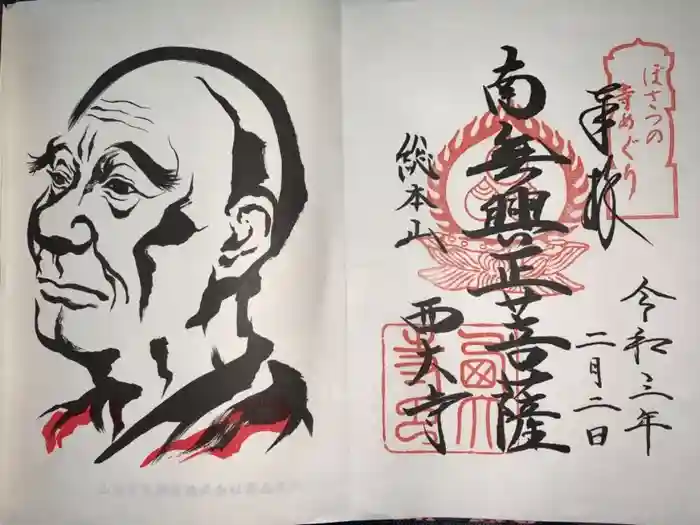 ぼさつの
寺めぐり
奉拝
令和三年
二月二日
南無興正菩薩
総本山
西大寺